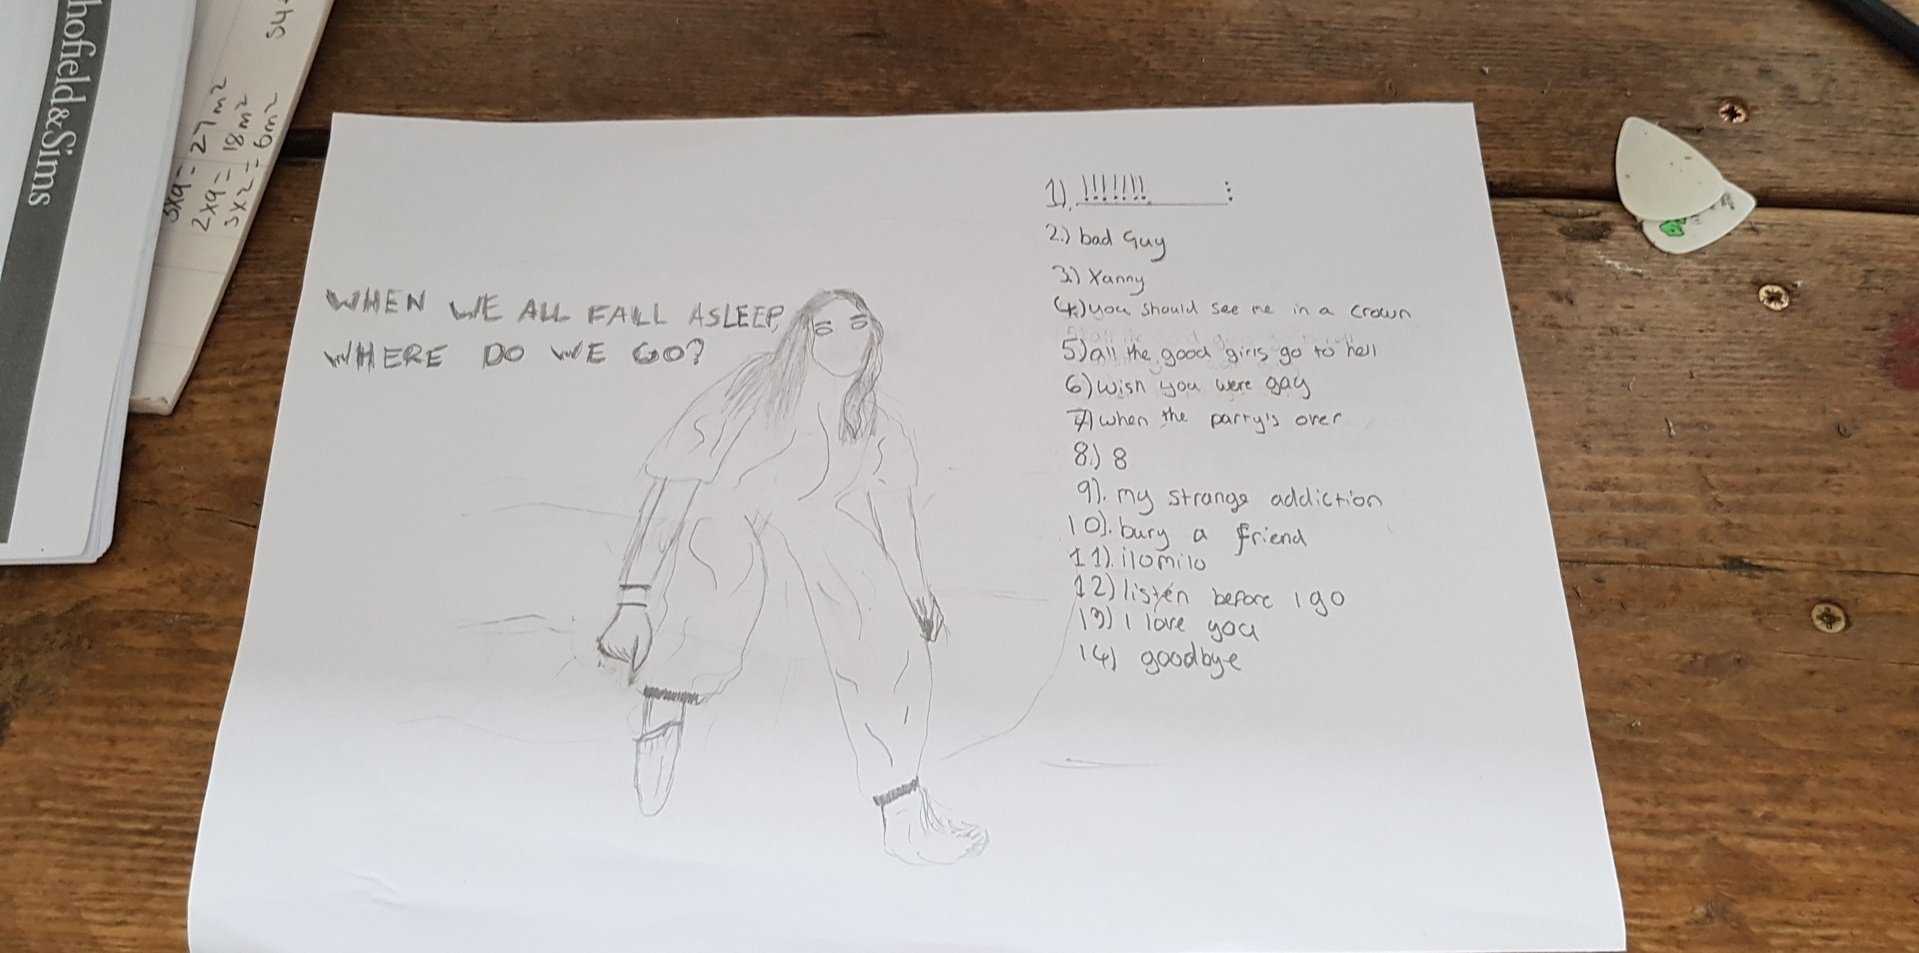 hofield&Sims
S4
3x9 = 27m²
2x9 = 18m²
3x2 = 6m²
WHEN WE ALL FALL ASLEEP,
WHERE DO WE GO?
1) !!!!!!!
2.) bad Guy
3.) Xanny
4.) you should see me in a crown
5) all the good girls go to hell
6) wish you were gay
7) when the party's over
8.) 8
9). my strange addiction
10). bury a friend
11). ilomilo
12) listen before i go
13) i love you
14) goodbye